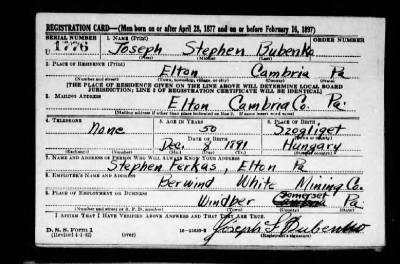 REGISTRATION CARD—(Men born on or after April 28, 1877 and on or before February 16, 1897)
SERIAL NUMBER 1. NAME (Print) ORDER NUMBER
U 1776 Joseph Stephen Bubenko
(First) (Middle) (Last)
2. PLACE OF RESIDENCE (Print)
Elton Cambria Pa
(Number and street) (Town, township, village, or city) (County) (State)
[THE PLACE OF RESIDENCE GIVEN ON THE LINE ABOVE WILL DETERMINE LOCAL BOARD
JURISDICTION; LINE 2 OF REGISTRATION CERTIFICATE WILL BE IDENTICAL]
3. MAILING ADDRESS
Elton Cambria Co. Pa.
[Mailing address if other than place indicated on line 2. If same insert word same]
4. TELEPHONE 5. AGE IN YEARS 6. PLACE OF BIRTH
None 50 Szogliget
DATE OF BIRTH
Dec. 8 1891 Hungary
(Mo.) (Day) (Yr.)
7. NAME AND ADDRESS OF PERSON WHO WILL ALWAYS KNOW YOUR ADDRESS
Stephen Ferkas, Elton Pa
8. EMPLOYER'S NAME AND ADDRESS
Berwind White Mining Co.
9. PLACE OF EMPLOYMENT OR BUSINESS
Somerset
Windber Cambria Pa.
(Number and street or R. F. D. number) (Town) (County) (State)
I AFFIRM THAT I HAVE VERIFIED ABOVE ANSWERS AND THAT THEY ARE TRUE.
D. S. S. Form 1
(Revised 4-1-42) (over) Joseph S. Bubenko
(Registrant's signature)